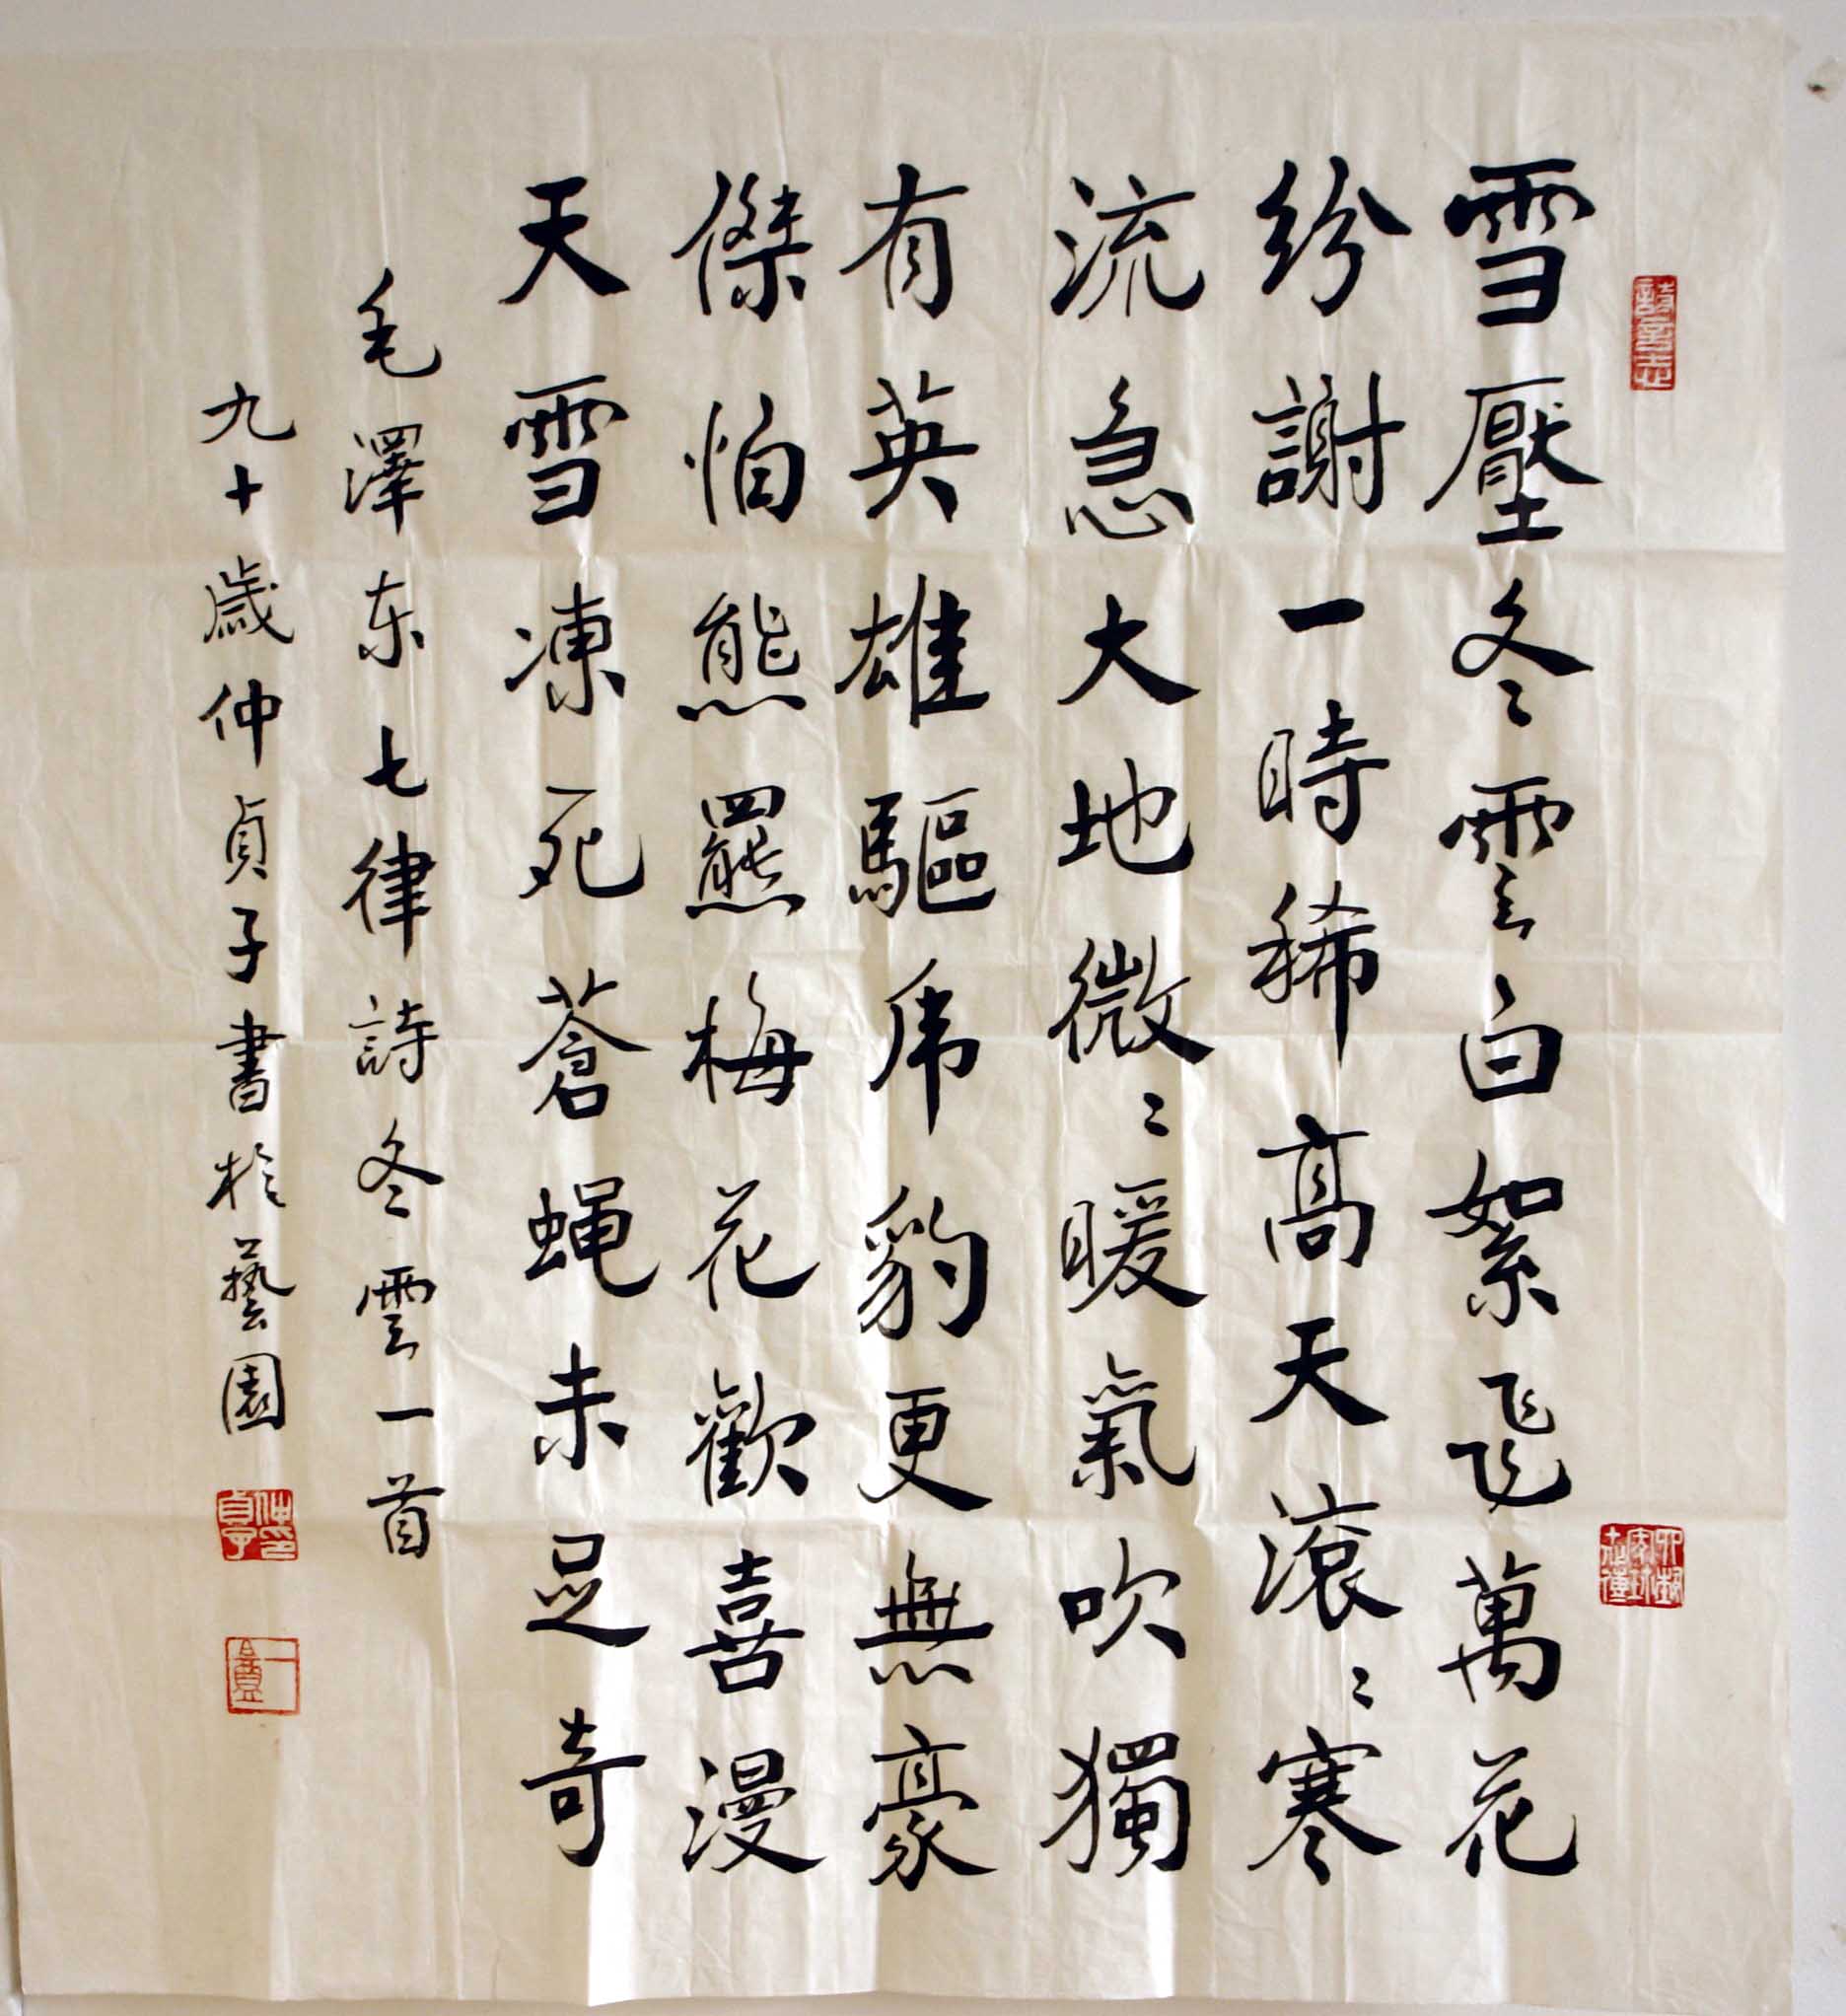 雪壓冬雲白絮飛萬花
紛謝一時稀高天滾〻寒
流急大地微〻暖氣吹獨
有英雄驅虎豹更無豪
傑怕熊羆梅花歡喜漫
天雪凍死蒼蝇未足奇
毛澤东七律詩冬雲一首
九十歲仲貞子書於藝園
詩言志
仲貞子印